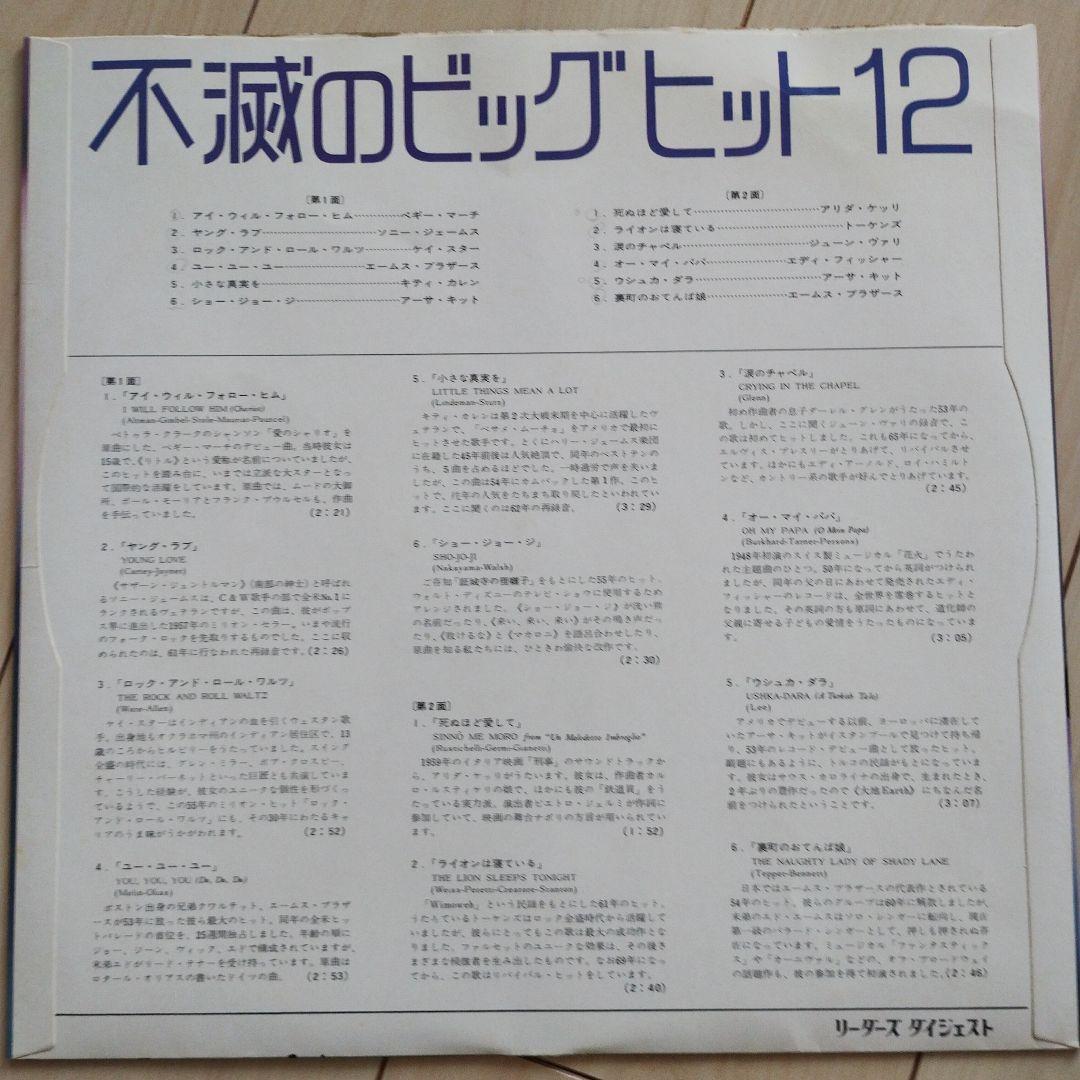 不滅のビッグヒット12
〔第1面〕
1. アイ・ウィル・フォロー・ヒム…………ペギー・マーチ
2. ヤング・ラブ……………………ソニー・ジェームス
3. ロック・アンド・ロール・ワルツ…………ケイ・スター
4. ユー・ユー・ユー………………エームス・ブラザース
5. 小さな真実を……………………キティ・カレン
6. ショー・ジョー・ジ………………アーサ・キット
〔第2面〕
1. 死ぬほど愛して…………………………アリダ・ケッリ
2. ライオンは寝ている…………………………トーケンズ
3. 涙のチャペル…………………………ジューン・ヴァリ
4. オー・マイ・パパ………………エディ・フィッシャー
5. ウシュカ・ダラ…………………………アーサ・キット
6. 裏町のおてんば娘………………エームス・ブラザース
〔第1面〕
1.「アイ・ウィル・フォロー・ヒム」
I WILL FOLLOW HIM (Chariot)
(Altman-Gimbel-Stole-Mauriat-Pourcel)
ペトゥラ・クラークのシャンソン「愛のシャリオ」を
原曲にした、ペギー・マーチのデビュー曲。当時彼女は
15歳で、《リトル》という愛称が名前についていましたが、
このヒットを踏み台に、いまでは立派な大スターとなっ
て国際的な活躍をしています。原曲では、ムードの大御
所、ポール・モーリアとフランク・プウルセルも、作曲
を手伝っていました。 (2:21)
2.「ヤング・ラブ」
YOUNG LOVE
(Cartey-Joyner)
《サザーン・ジェントルマン》(南部の紳士)と呼ばれ
るソニー・ジェームスは、C&W歌手の部で全米No.1に
ランクされるヴェテランですが、この曲は、彼がポップ
ス界に進出した1957年のミリオン・セラー。いまや流行
のフォーク・ロックを先取りするものでした。ここに収
められたのは、61年に行なわれた再録音です。(2:26)
3.「ロック・アンド・ロール・ワルツ」
THE ROCK AND ROLL WALTZ
(Ware-Allen)
ケイ・スターはインディアンの血を引くウェスタン歌
手。出身地もオクラホマ州のインディアン居住区で、13
歳のころからヒルビリーをうたっていました。スイング
全盛の時代には、グレン・ミラー、ボブ・クロスビー、
チャーリー・バーネットといった巨匠とも共演していま
す。こうした経験が、彼女のユニークな個性を形づくっ
ているようで、この55年のミリオン・ヒット「ロック・
アンド・ロール・ワルツ」にも、その30年にわたるキャ
リアのうま味がうかがわれます。 (2:52)
4.「ユー・ユー・ユー」
YOU, YOU, YOU (Du, Du, Du)
(Mellin-Olias)
ボストン出身の兄弟クヮルテット、エームス・ブラザ
ースが53年に放った彼ら最大のヒット。同年の全米ヒッ
トパレードの首位を、15週間独占しました。年齢の順に
ジョー、ジーン、ヴィック、エドで構成されていますが、
末弟エドがリード・テナーを受け持っています。原曲は
ロタール・オリアスの書いたドイツの曲。 (2:53)
5.「小さな真実を」
LITTLE THINGS MEAN A LOT
(Lindeman-Stutz)
キティ・カレンは第2次大戦末期を中心に活躍したヴ
ェテランで、「ベサメ・ムーチョ」をアメリカで最初に
ヒットさせた歌手です。とくにハリー・ジェームス楽団
に在籍した45年前後は人気絶頂で、同年のベストテンの
うち、5曲を占めるほどでした。一時過労で声を失いま
したが、この曲は54年にカムバックした第1作、このヒ
ットで、往年の人気をたちまち取り戻したといわれてい
ます。ここに聞くのは62年の再録音。 (3:29)
6.「ショー・ジョー・ジ」
SHO-JO-JI
(Nakayama-Walsh)
ご存知「証城寺の狸囃子」をもとにした55年のヒット。
ウォルト・ディズニーのテレビ・ショウに使用するため
アレンジされました。《ショー・ジョー・ジ》が浅い狸
の名前だったり、《来い、来い、来い》がその鳴き声だった
り、《負けるな》と《マカロニ》を語呂合わせしたり、
原曲を知る私たちには、ひときわ愉快な改作です。
(2:30)
〔第2面〕
1.「死ぬほど愛して」
SINNÒ ME MORO from "Un Maledetto Imbroglio"
(Rustichelli-Germi-Gianetti)
1959年のイタリア映画「刑事」のサウンドトラックか
ら、アリダ・ケッリがうたいます。彼女は、作曲者カル
ロ・ルスティケリの娘で、ほかにも彼の「鉄道員」をう
たっている実力派。演出者ピエトロ・ジェルミが作詞に
参加していて、映画の舞台ナポリの方言が用いられてい
ます。 (1:52)
2.「ライオンは寝ている」
THE LION SLEEPS TONIGHT
(Weiss-Peretti-Creatore-Stanton)
「Wimoweh」という民謡をもとにした61年のヒット。
うたっているトーケンズはロック全盛時代から活躍して
いましたが、彼らにとってもこの歌は最大の成功作とな
りました。ファルセットのユニークな効果は、その後さ
まざまな模倣者を生み出したものです。なお69年になっ
てから、この歌はリバイバル・ヒットをしています。
(2:40)
3.「涙のチャペル」
CRYING IN THE CHAPEL
(Glenn)
初め作曲者の息子ダーレル・グレンがうたった53年の
歌。しかし、ここに聞くジューン・ヴァリの録音で、こ
の歌は初めてヒットしました。これも65年になってから、
エルヴィス・プレスリーがとりあげて、リバイバルさせ
ています。ほかにもエディ・アーノルド、ロイ・ハミルト
ンなど、カントリー系の歌手が好んでとりあげています。
(2:45)
4.「オー・マイ・パパ」
OH MY PAPA (O Mein Papa)
(Burkhard-Turner-Parsons)
1948年初演のスイス製ミュージカル「花火」でうたわ
れた主題曲のひとつ。50年になってから英詞がつけられ
ましたが、同年の父の日にあわせて発売されたエディ・
フィッシャーのレコードは、全世界を席巻するヒットと
なりました。その英詞の方も原詞にあわせて、道化師の
父親に寄せる子どもの愛情をうたったものになっていま
す。 (3:05)
5.「ウシュカ・ダラ」
USHKA-DARA (A Turkish Tale)
(Lee)
アメリカでデビューする以前、ヨーロッパに滞在して
いたアーサ・キットがイスタンブールで見つけて持ち帰
り、53年のレコード・デビュー曲として放ったヒット。
副題にもあるように、トルコの民謡がもとになっていま
す。彼女はサウス・カロライナの出身で、生まれたとき、
2年ぶりの豊作だったので《大地Earth》にちなんだ名
前をつけられたということです。 (3:07)
6.「裏町のおてんば娘」
THE NAUGHTY LADY OF SHADY LANE
(Tepper-Bennett)
日本ではエームス・ブラザースの代表作とされている
54年のヒット。彼らのグループは60年に解散しましたが、
末弟のエド・エームスはソロ・シンガーに転向し、現在
第一級のバラード・シンガーとして、押しも押されぬ存
在になっています。ミュージカル「ファンタスティック
ス」や「カーニヴァル」などの、オフ・ブロードウェイ
の話題作も、彼の参加を得て初演されました。(2:46)
リーダーズ ダイジェスト